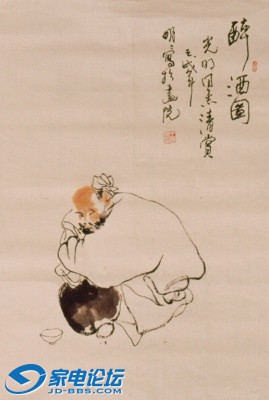 醉酒图
光明同志清赏
壬戌年
明明写于画院
家电论坛
JD-BBS.COM